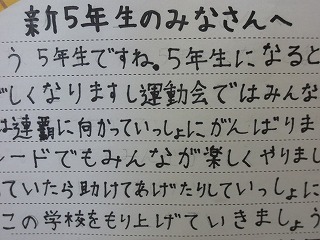 新5年生のみなさんへ
う5年生ですね。5年生になると
しくなりますし運動会ではみんな
は連覇に向かっていっしょにがんばりま
レードでもみんなが楽しくやりまし
ていたら助けてあげたりしていっしょに
この学校をもり上げていきましょう